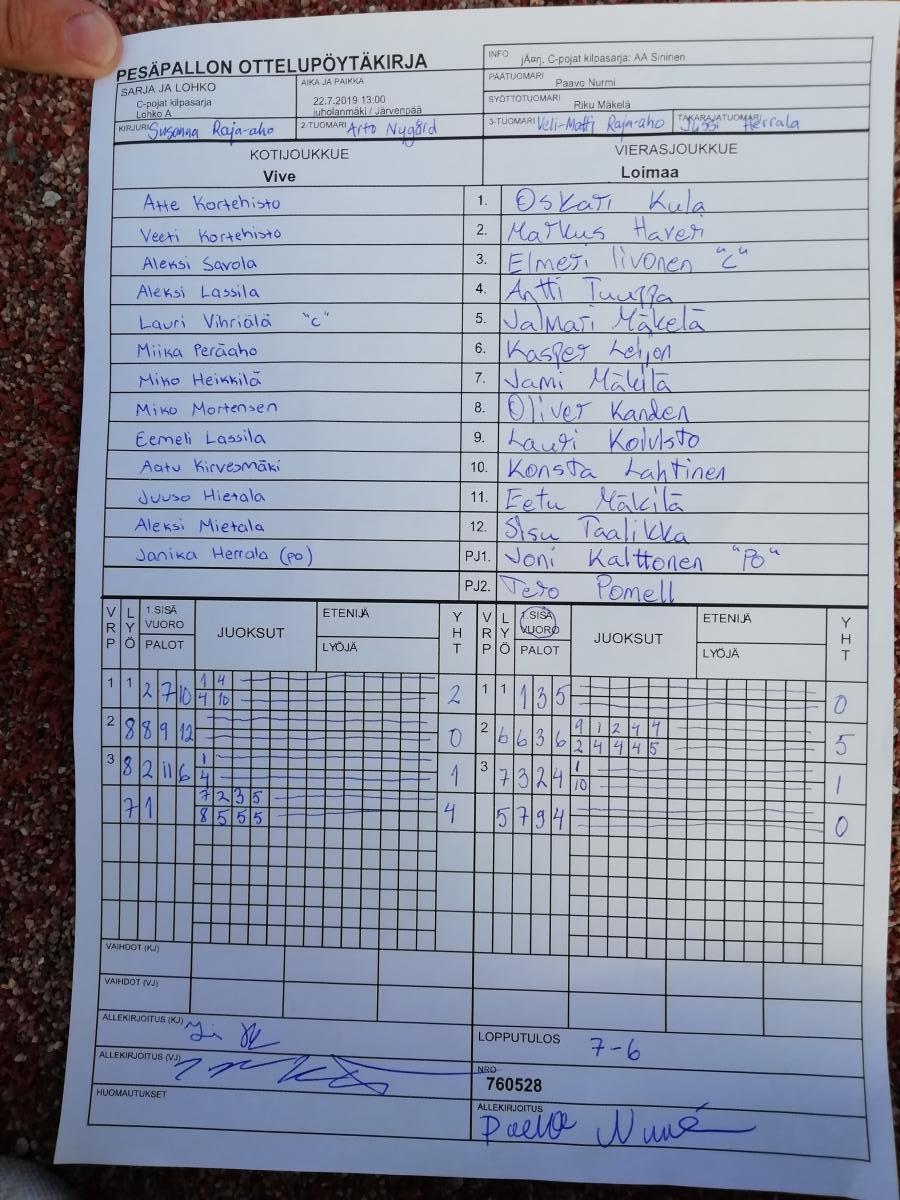 PESÄPALLON OTTELUPÖYTÄKIRJA
INFO jÄ¤rj. C-pojat kilpasarja: AA Sininen
SARJA JA LOHKO
C-pojat kilpasarja
Lohko A
AIKA JA PAIKKA
22.7.2019 13:00
juholanmäki / Järvenpää
PÄÄTUOMARI Paavo Nurmi
SYÖTTÖTUOMARI Riku Mäkelä
KIRJURI Susanna Raja-aho 2-TUOMARI Arto Nygård 3-TUOMARI Veli-Matti Raja-aho TAKARAJATUOMARI Jussi Herrala
KOTIJOUKKUE VIERASJOUKKUE
Vive Loimaa
Atte Kortehisto 1. Oskari Kula
Veeti Kortehisto 2. Markus Haveri
Aleksi Savola 3. Elmeri Iivonen "C"
Aleksi Lassila 4. Antti Tuuppa
Lauri Vihriälä "C" 5. Jalmari Mäkelä
Miika Peräaho 6. Kasper Leijon
Miko Heikkilä 7. Jami Mäkilä
Miko Mortensen 8. Oliver Kanden
Eemeli Lassila 9. Lauri Koivisto
Aatu Kirvesmäki 10. Konsta Lahtinen
Juuso Hietala 11. Eetu Mäkilä
Aleksi Mietala 12. Sisu Taalikka
Janika Herrala (po) PJ1. Joni Kalttonen "PO"
PJ2. Tero Pomell
VRP LYÖ 1.SISÄ VUORO PALOT JUOKSUT ETENIJÄ LYÖJÄ YHT VRP LYÖ 1.SISÄ VUORO PALOT JUOKSUT ETENIJÄ LYÖJÄ YHT
1 1 2 7 10 1 4 2 1 1 1 3 5 0
4 10
2 8 8 9 12 0 2 6 6 3 6 9 1 2 4 4 5
2 4 4 4 5
3 8 2 11 6 1 1 3 7 3 2 4 1 1
4 10
7 1 7 2 3 5 4 5 7 9 4 0
8 5 5 5
VAIHDOT (KJ)
VAIHDOT (VJ)
ALLEKIRJOITUS (KJ)
LOPPUTULOS 7-6
ALLEKIRJOITUS (VJ)
NRO
760528
HUOMAUTUKSET
ALLEKIRJOITUS